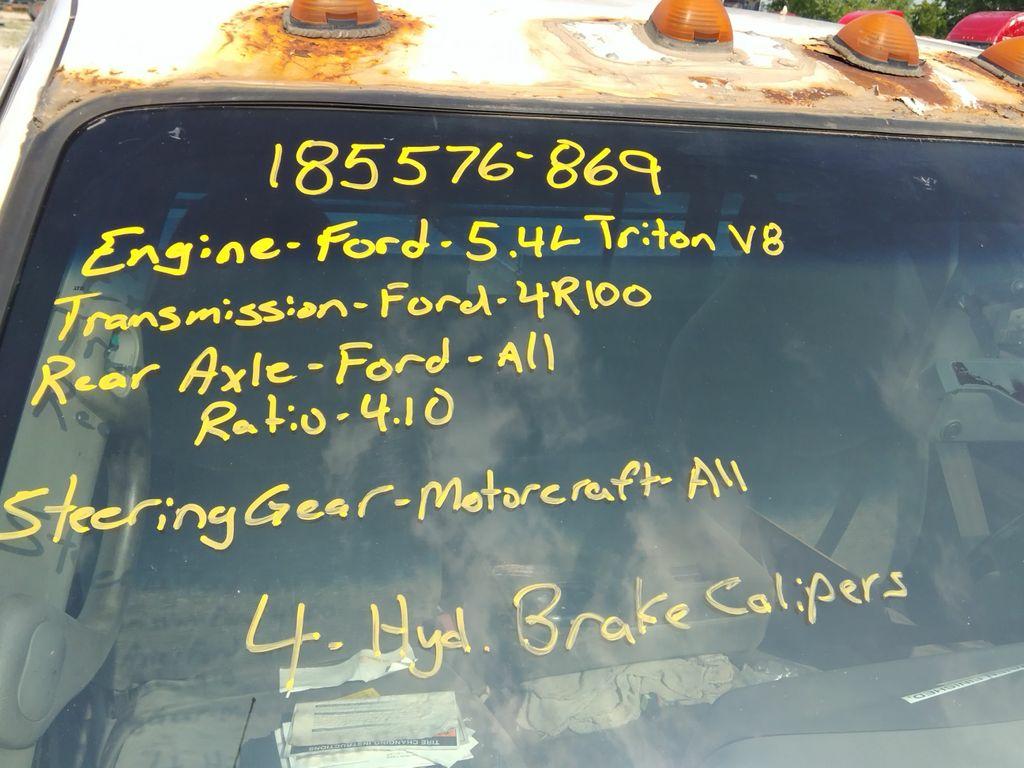 185576-869
Engine-Ford-5.4L Triton V8
Transmission-Ford-4R100
Rear Axle-Ford-All
Ratio-4.10
Steering Gear-Motorcraft-All
4-Hyd. Brake Calipers
TIRE CHANGING INSTRUCTIONS